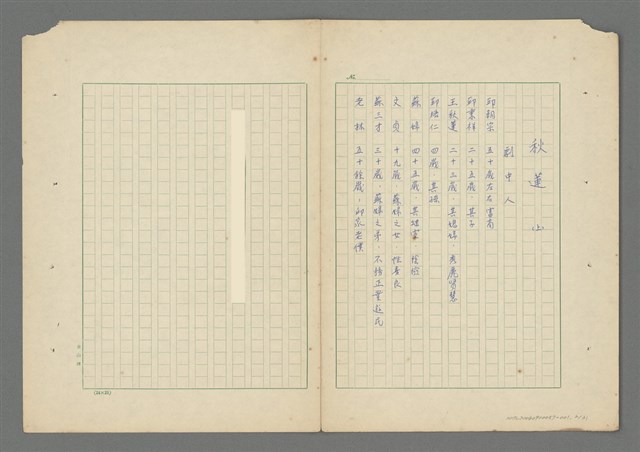 秋蓮山
劇中人
邱朝宗 五十歲左右 富商
邱東祥 二十五歲,其子
王秋蓮 二十二歲,其媳婦,秀麗賢慧
邱培仁 四歲,其孫
蘇婦 四十五歲,其
文貞 十九歲,蘇婦之女 性善良
蘇三才 三十歲,蘇婦之弟,不務正業
老林 五十餘歲,邱家老僕